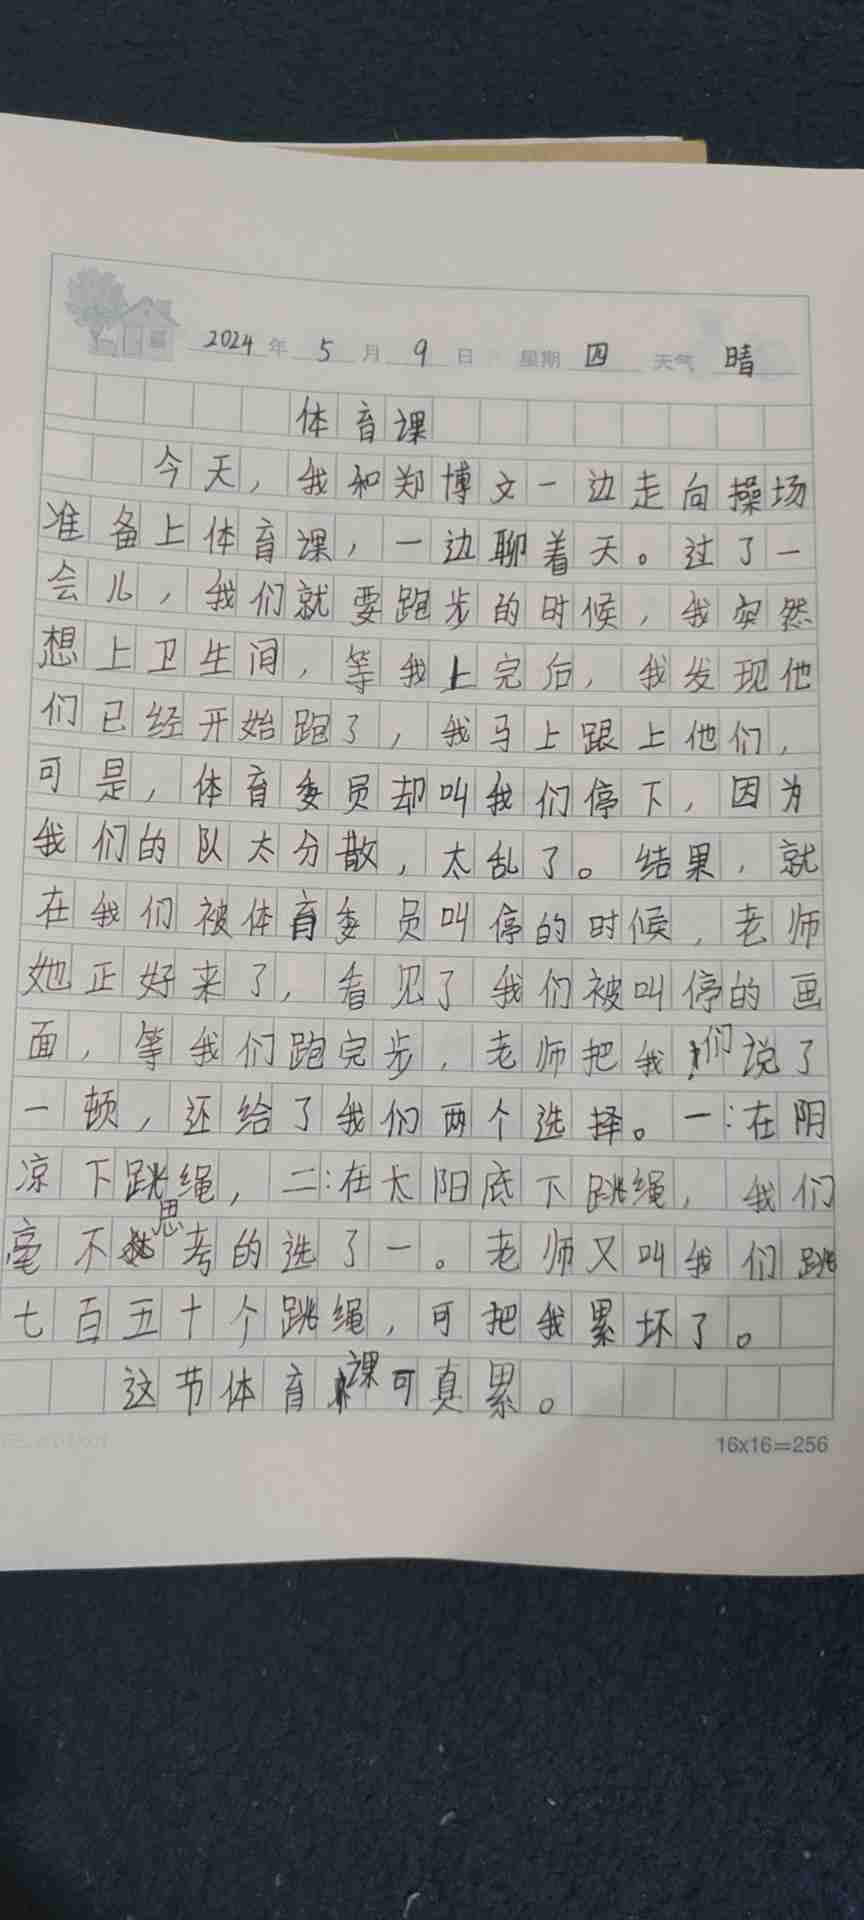 2024年5月9日 星期四 天气 晴
体育课
今天，我和郑博文一边走向操场
准备上体育课，一边聊着天。过了一
会儿，我们就要跑步的时候，我突然
想上卫生间，等我上完后，我发现他
们已经开始跑了，我马上跟上他们，
可是，体育委员却叫我们停下，因为
我们的队太分散，太乱了。结果，就
在我们被体育委员叫停的时候，老师
她正好来了，看见了我们被叫停的画
面，等我们跑完步，老师把我们说了
一顿，还给了我们两个选择。一：在阴
凉下跳绳，二：在太阳底下跳绳，我们
毫不思考的选了一。老师又叫我们跳
七百五十个跳绳，可把我累坏了。
这节体育课可真累。
16x16=256